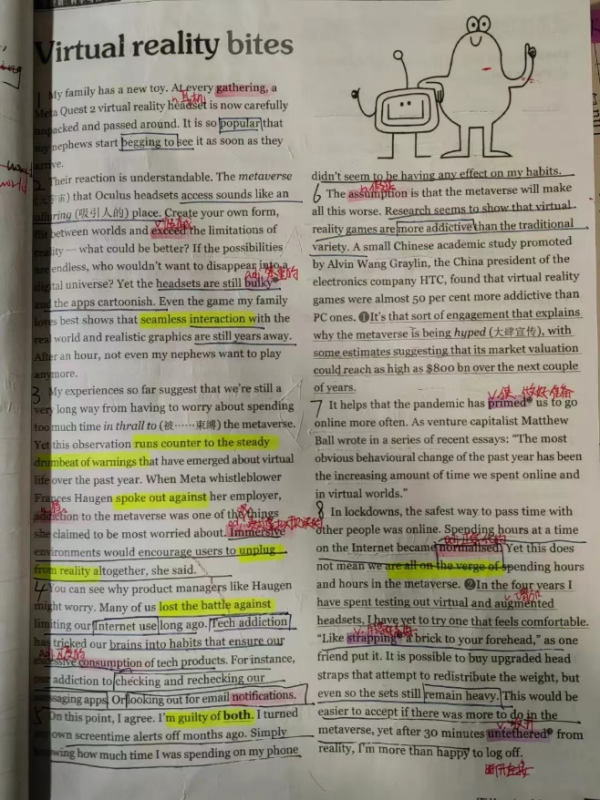 Virtual reality bites
1 My family has a new toy. At every gathering, a
Meta Quest 2 virtual reality headset is now carefully
unpacked and passed around. It is so popular that
my nephews start begging to see it as soon as they
arrive.
2 Their reaction is understandable. The metaverse
that Oculus headsets access sounds like an
alluring (吸引人的) place. Create your own form,
between worlds and exceed the limitations of
reality — what could be better? If the possibilities
are endless, who wouldn't want to disappear into a
digital universe? Yet the headsets are still bulky
and the apps cartoonish. Even the game my family
loves best shows that seamless interaction with the
real world and realistic graphics are still years away.
After an hour, not even my nephews want to play
anymore.
3 My experiences so far suggest that we're still a
very long way from having to worry about spending
too much time in thrall to (被……束缚) the metaverse.
Yet this observation runs counter to the steady
drumbeat of warnings that have emerged about virtual
life over the past year. When Meta whistleblower
Frances Haugen spoke out against her employer,
addiction to the metaverse was one of the things
she claimed to be most worried about. Immersive
environments would encourage users to unplug
from reality altogether, she said.
4 You can see why product managers like Haugen
might worry. Many of us lost the battle against
limiting our Internet use long ago. Tech addiction
has tricked our brains into habits that ensure our
excessive consumption of tech products. For instance,
our addiction to checking and rechecking our
messaging apps. Or looking out for email notifications.
5 On this point, I agree. I'm guilty of both. I turned
my own screentime alerts off months ago. Simply
knowing how much time I was spending on my phone
didn't seem to be having any effect on my habits.
6 The assumption is that the metaverse will make
all this worse. Research seems to show that virtual
reality games are more addictive than the traditional
variety. A small Chinese academic study promoted
by Alvin Wang Graylin, the China president of the
electronics company HTC, found that virtual reality
games were almost 50 per cent more addictive than
PC ones. ❶It's that sort of engagement that explains
why the metaverse is being hyped (大肆宣传), with
some estimates suggesting that its market valuation
could reach as high as $800 bn over the next couple
of years.
7 It helps that the pandemic has primed us to go
online more often. As venture capitalist Matthew
Ball wrote in a series of recent essays: "The most
obvious behavioural change of the past year has been
the increasing amount of time we spent online and
in virtual worlds."
8 In lockdowns, the safest way to pass time with
other people was online. Spending hours at a time
on the Internet became normalised. Yet this does
not mean we are all on the verge of spending hours
and hours in the metaverse. ❷In the four years I
have spent testing out virtual and augmented
headsets, I have yet to try one that feels comfortable.
"Like strapping a brick to your forehead," as one
friend put it. It is possible to buy upgraded head
straps that attempt to redistribute the weight, but
even so the sets still remain heavy. This would be
easier to accept if there was more to do in the
metaverse, yet after 30 minutes untethered from
reality, I'm more than happy to log off.
断开连接